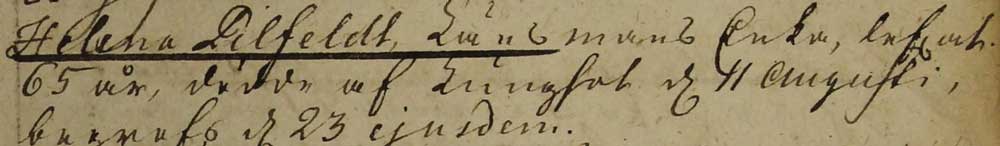 Helena Dilfeldt, Länsmans Enka, lefvat
65 år, dödde af Lungsot d 11 Augusti,
begrofs d 23 ejusdem.